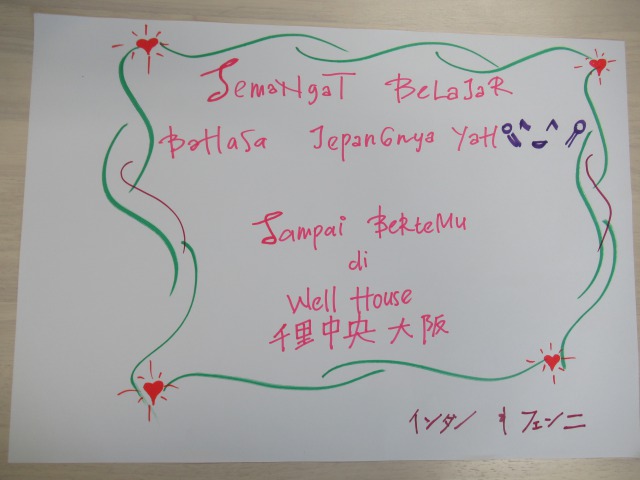 SemaNgaT BeLaJaR
BaHaSa JepanGnya YaH
Sampai BeRteMu
di
Well House
千里中央 大阪
インタン & フェンニ